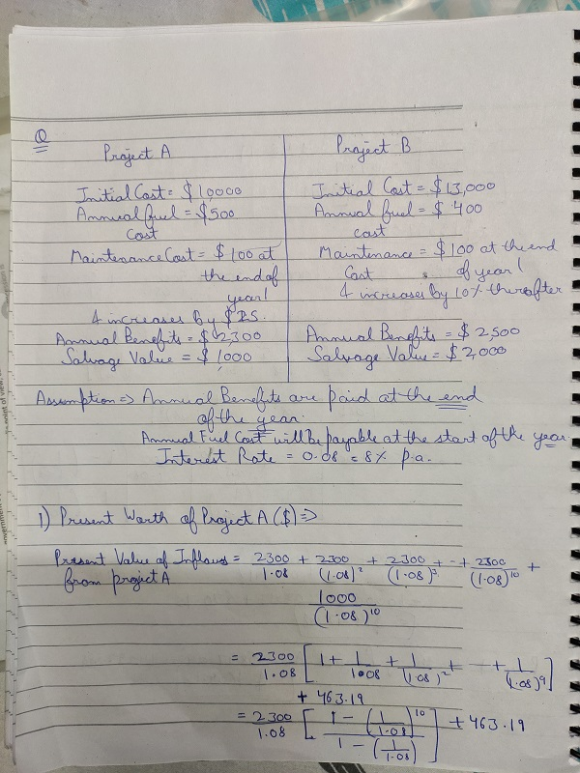 Q
Project A
Project B
Initial Cost = $10000
Initial Cost = $13,000
Annual fuel = $500
Annual fuel = $400
cost
cost
Maintenance Cost = $100 at
Maintenance = $100 at the end
the end of
Cost of year 1
year 1
& increases by 10% thereafter
& increases by $25.
Annual Benefits = $2,300
Annual Benefits = $2,500
Salvage Value = $1,000
Salvage Value = $2,000
Assumption => Annual Benefits are paid at the end
of the year.
Annual Fuel Cost will be payable at the start of the year
Interest Rate = 0.08 = 8% p.a.
1) Present Worth of Project A ($) =>
Present Value of Inflows = 2300/1.08 + 2300/(1.08)² + 2300/(1.08)³ + - + 2300/(1.08)¹⁰ +
from project A
1000/(1.08)¹⁰
= 2300/1.08 [1 + 1/1.08 + 1/(1.08)² + - + 1/(1.08)⁹]
+ 463.19
= 2300/1.08 [1 - (1/1.08)¹⁰ / 1 - (1/1.08)] + 463.19